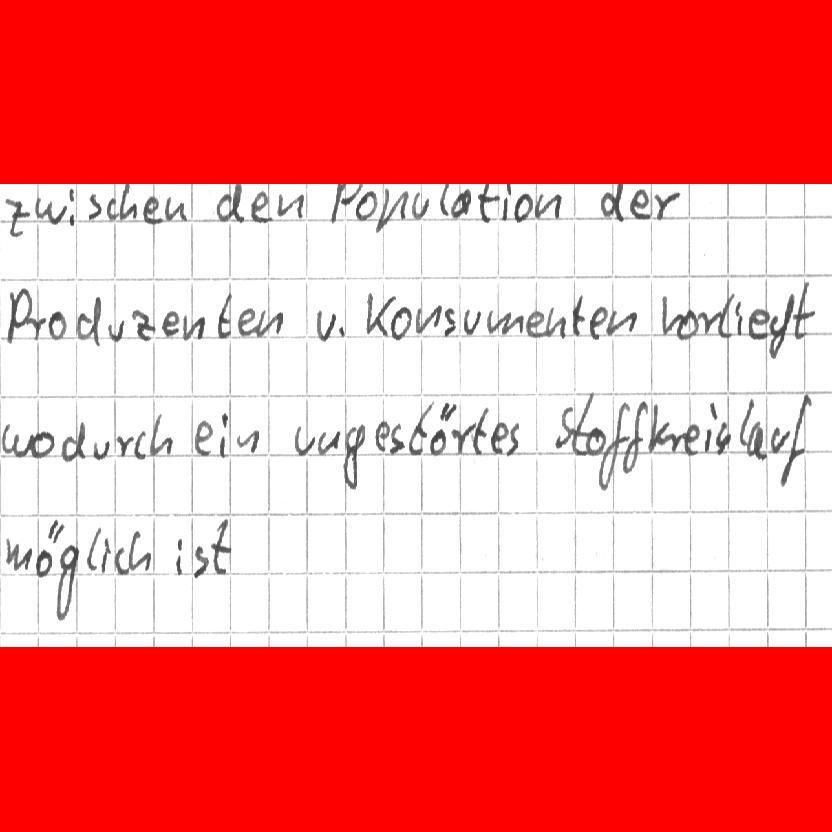 zwischen den Population der
Produzenten u. Konsumenten vorliegt
wodurch ein ungestörtes Stoffkreislauf
möglich ist